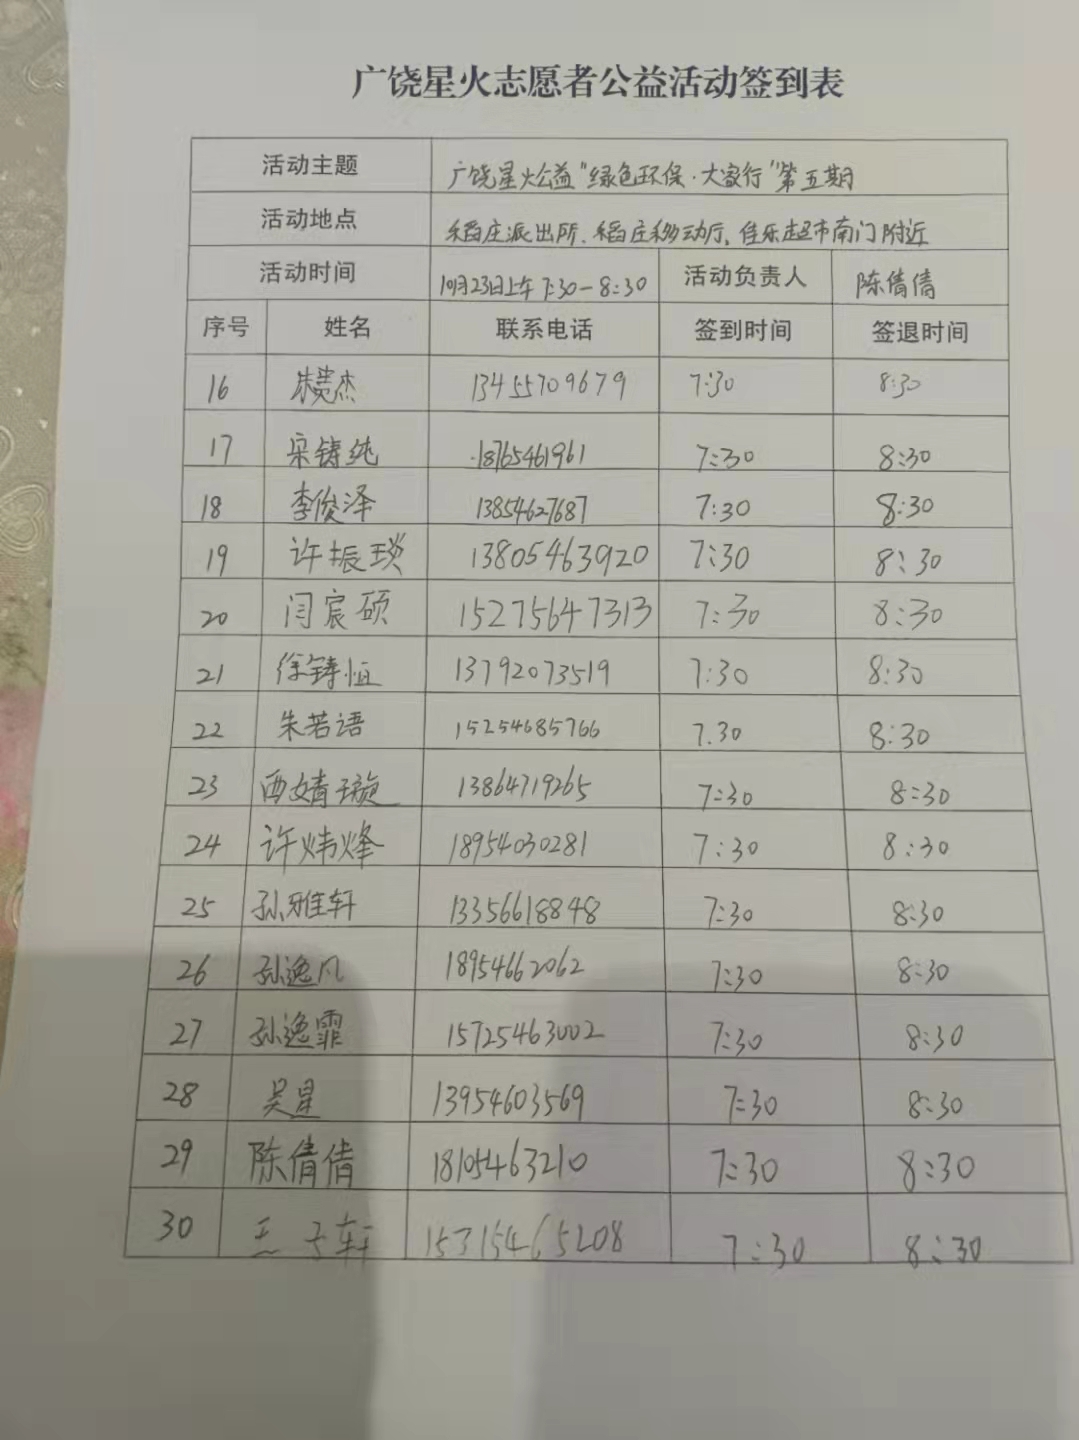 广饶星火志愿者公益活动签到表
活动主题 广饶星火公益“绿色环保·大家行”第五期
活动地点 稻庄派出所、稻庄移动厅,佳乐超市南门附近
活动时间 10月23日上午7:30-8:30 活动负责人 陈倩倩
序号 姓名 联系电话 签到时间 签退时间
16 朱赟杰 13455709679 7:30 8:30
17 宋铸纯 18765461961 7:30 8:30
18 李俊泽 13854627687 7:30 8:30
19 许振琰 13805463920 7:30 8:30
20 闫宸硕 15275647313 7:30 8:30
21 徐铸恒 13792073519 7:30 8:30
22 朱若语 15254685766 7.30 8:30
23 西婧璇 13864719265 7:30 8:30
24 许炜烽 18954030281 7:30 8:30
25 孙雅轩 13356618848 7:30 8:30
26 孙逸凡 18954662062 7:30 8:30
27 孙逸霏 15725463002 7:30 8:30
28 吴星 13954603569 7:30 8:30
29 陈倩倩 18105463210 7:30 8:30
30 王子轩 15315465208 7:30 8:30